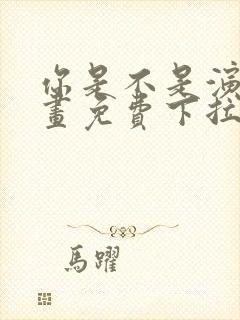 你是不是演
畫免費下拉
馬躍